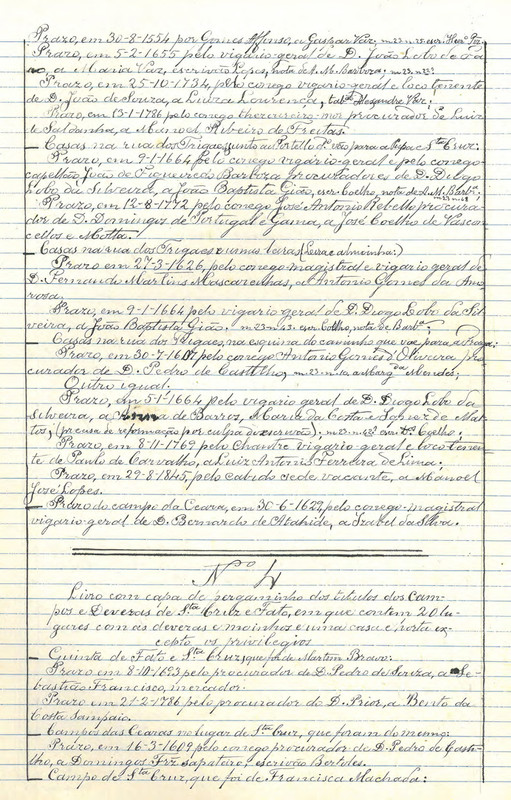 Prazo, em 30-8-1554 por Gomes Affonso, a Gaspar Vaz, m 23 n 25 escr.
Prazo, em 5-2-1655 pelo vigario geral de D. João Lobo de Fa-
ro, a Maria Vaz, escrivão Lopes, nota de A. M. Barboza. m 23 n 23.
Prazo, em 25-10-1734, pelo conego vigario-geral e loco tenente
de D. João de Souza, a Luiza Lourença, tab. Alexandre Vaz.
Prazo, em 13-1-1786 pelo conego thezoureiro-mor procurador de Luiz
e Saldanha, a Manoel Ribeiro de Freitas.
Casas na rua dos Trigaes junto ao Portello d. vão para a Ripa e Sta Cruz:
Prazo, em 9-1-1664 pelo conego vigario-geral e pelo conego
capellão João de Figueiredo Barboza procuradores de D. Diogo
Lobo da Silveira, a João Baptista Gião, escr. Coelho, nota de A. M. Barbª
Prazo, em 12-8-1772 pelo conego José Antonio Rebello procura-
dor de D. Domingos de Portugal e Gama, a José Coelho de Vascon-
cellos e Motta.
Casas na rua dos Trigaes e umas leiras (Leira e almoinha:)
Prazo em 27-3-1626, pelo conego magistral e vigario geral de
D. Fernando Martins Mascarenhas, a Antonio Gomes da Amo-
rosa.
Prazo, em 9-1-1664 pelo vigario geral de D. Diogo Lobo da Sil-
veira, a João Baptista Gião. m 23 n 43. escr. Coelho, nota de Barbª;
Casas na rua dos Trigaes, na esquina do caminho que vae para a Fraga:
Prazo, em 30-7-1601, pelo conego Antonio Gomes d'Oliveira pro-
curador de D. Pedro de Castilho,
Outro igual:
Prazo, em 5-1-1664 pelo vigario geral de D. Diogo Lobo da
Silveira, a de Barros, Maria da Costa e de Mat-
tos; (precisa de reformação por culpa do escrivão); m 23 n 43 escr. Coelho.
Prazo, em 8-11-1769 pelo Chantre vigario geral e loco tenen-
te de Paulo de Carvalho, a Luiz Antonio Ferreira de Lima;
Prazo, em 29-8-1845, pelo cabido sede vacante, a Manoel
José Lopes.
Prazo do campo da Ceara, em 30-6-1622, pelo conego-magistral
vigario-geral de D. Bernardo de Atahide, a Izabel da Silva.
Nº 4
Livro com capa de pergaminho dos titulos dos Cam-
pos e Deveras de Sta Cruz e Fato, em que contem 20 lu-
gares com as deveras e moinhos e uma casa e horta ex-
cepto os privilegios
Quinta de Fato e Sta Cruz, que foi de Martim Bravo:
Prazo em 8-10-1693 pelo procurador de D. Pedro de Souza, a Se-
bastião Francisco, mercador.
Prazo em 21-2-1786 pelo procurador do D. Prior, a Bento da
Costa Sampaio.
Campos das Cearas no lugar de Sta Cruz, que foram do mesmo:
Prazo, em 16-3-1609 pelo conego procurador de D. Pedro de Caste-
lho, a Domingos Frz sapateiro, escrivão Bortoles.
Campo de Sta Cruz, que foi de Francisca Machada: